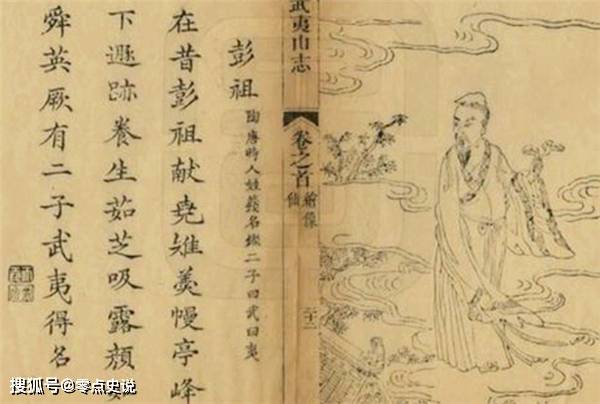 武夷山志
卷之首
繪像
仙
彭祖 陶唐時人姓籛名鏗二子曰武曰夷
在昔彭祖献堯雉羹幔亭峰
下遯跡養生茹芝吸露顏
舜英厥有二子武夷得名
搜狐号@零点史说